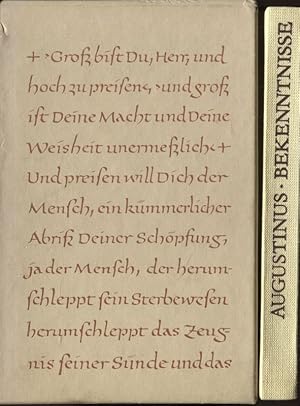 + ›Groß bist Du, Herr, und
hoch zu preisen‹, ›und groß
ist Deine Macht und Deine
Weisheit unermeßlich‹ +
Und preisen will Dich der
Mensch, ein kümmerlicher
Abriß Deiner Schöpfung,
ja der Mensch, der herum-
schleppt sein Sterbewesen
herumschleppt das Zeug-
nis seiner Sünde und das
AUGUSTINUS · BEKENNTNISSE